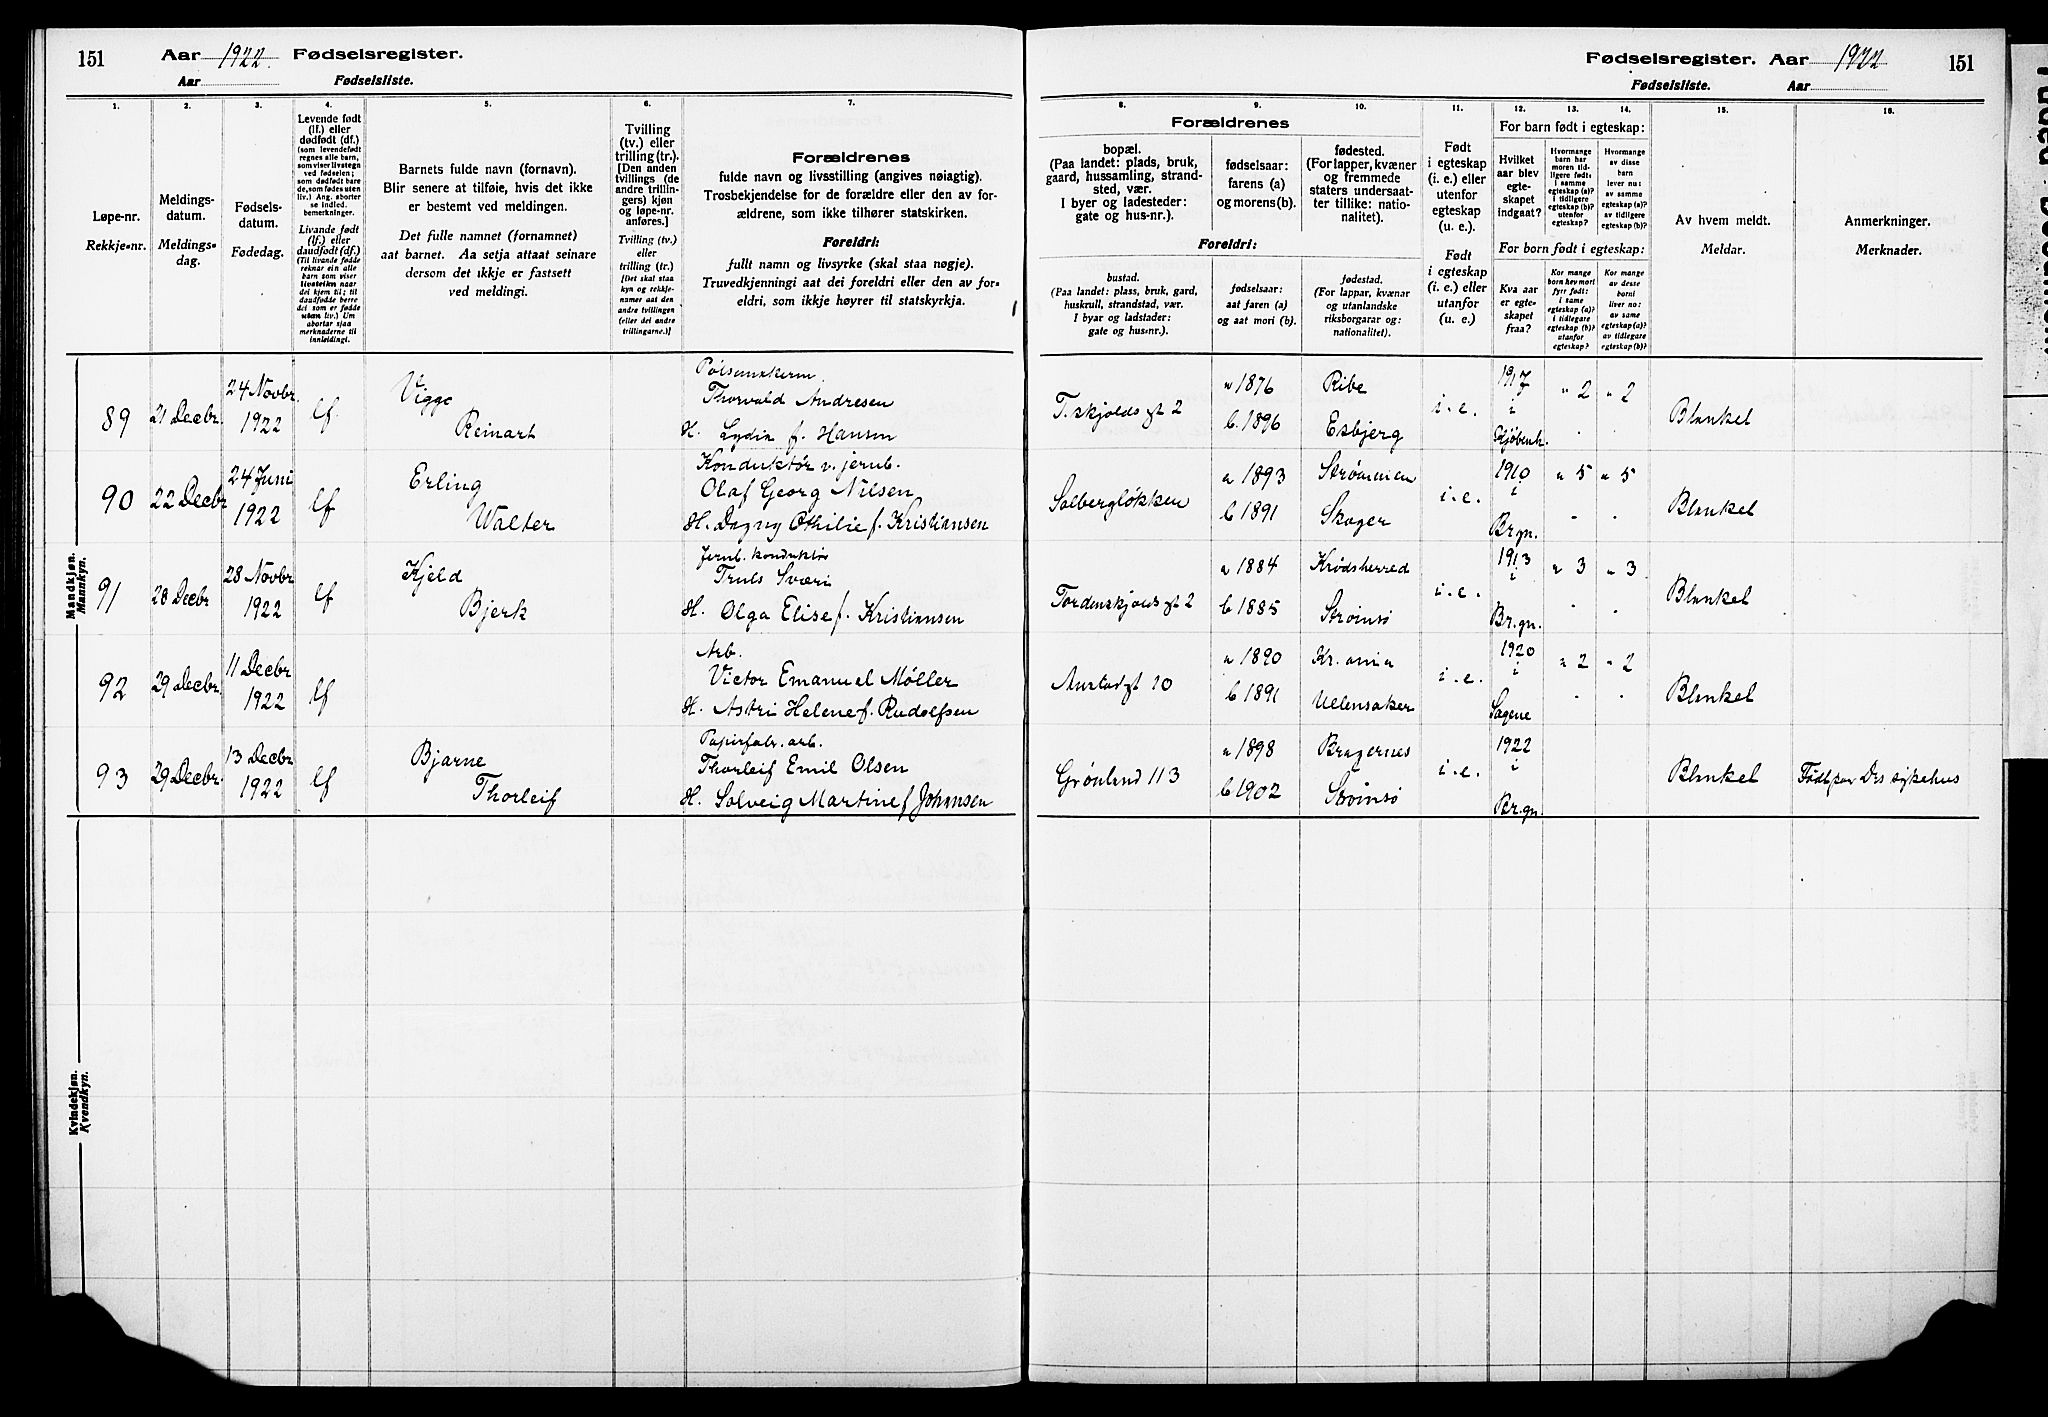 151 Aar 1922. Fødselsregister.
Aar Fødselsliste.
1. 2. 3. 4. 5. 6. 7.
Løpe-nr.
Rekkje-nr.
Meldings-
datum.
Meldings-
dag.
Fødsels-
datum.
Fødedag.
Levende født
(lf.) eller
dødfødt (df.)
(som levendefødt
regnes alle barn,
som viser livstegn
ved fødselen;
som dødfødt bare
de, som fødes uten
liv.) Ang. aborter
se indled.
bemerkninger.
Livande født
(lf.) eller
daudfødt (df.)
(Til livande fødde
reknar ein alle
barn som viser
livsteikn naar
dei kjem til; til
daudfødde berre
dei som er fødde
utan liv.) Um
abortar sjaa
merknaderne til
innleidingi.
Barnets fulde navn (fornavn).
Blir senere at tilføie, hvis det ikke
er bestemt ved meldingen.
Det fulle namnet (fornamnet)
aat barnet. Aa setja attaat seinare
dersom det ikkje er fastsett
ved meldingi.
Tvilling
(tv.) eller
trilling (tr.).
[Den anden
tvillings (de
andre trillin-
gers) kjøn
og løpe-nr.
anføres.]
Tvilling (tv.)
eller
trilling (tr.)
[Det skal staa
kyn og rekkje-
numer aat den
andre tvillingen
(eller dei andre
trillingarne.)]
Forældrenes
fulde navn og livsstilling (angives nøiagtig).
Trosbekjendelse for de forældre eller den av for-
ældrene, som ikke tilhører statskirken.
Foreldri:
fullt namn og livsyrke (skal staa nøgje).
Truvedkjenningi aat dei foreldri eller den av for-
eldri, som ikkje høyrer til statskyrkja.
Mandkjøn.
Mannkyn.
89 21 Decbr. 24 Novbr. 1922 lf. Viggo Reinart
Pølsemakerm.
Thorvald Andresen
H. Lydia f. Hansen
90 22 Decbr 24 Juni 1922 lf Erling Walter
Konduktør v. jernb.
Olaf Georg Nilsen
H. Dagny Othilie f. Kristiansen
91 28 Decbr 28 Novbr 1922 lf Kjeld Bjerk
Jernb. konduktør
Truls Sværi
H. Olga Elise f. Kristiansen
92 29 Decbr. 11 Decbr 1922 lf
Arb.
Victor Emanuel Møller
H. Astri Helene f. Rudolfsen
93 29 Decbr. 13 Decbr 1922 lf Bjarne Thorleif
Papirfabr. arb.
Thorleif Emil Olsen
H. Solveig Martine f Johansen
Kvindekjøn.
Kvendkyn.
Fødselsregister. Aar 1922 151
Fødselsliste. Aar
8. 9. 10. 11. 12. 13. 14. 15. 16.
Forældrenes
bopæl.
(Paa landet: plads, bruk,
gaard, hussamling, strand-
sted, vær.
I byer og ladesteder:
gate og hus-nr.).
fødselsaar:
farens (a)
og morens (b).
fødested.
(For lapper, kvæner
og fremmede
staters undersaat-
ter tillike: natio-
nalitet).
Foreldri:
bustad.
(Paa landet: plass, bruk, gard,
huskrull, strandstad, vær.
I byar og ladstader:
gate og hus-nr.).
fødselsaar:
aat faren (a)
og aat mori (b).
fødestad.
(For lappar, kvænar
og utanlandske
riksborgarar og:
nationalitet).
Født
i egteskap
(i. e.) eller
utenfor
egteskap
(u. e.).
Født
i egteskap
(i. e.) eller
utanfor
(u. e.)
For barn født i egteskap:
Hvilket
aar blev
egte-
skapet
indgaat?
Hvormange
barn har
moren tid-
ligere født:
i samme
egteskap (a)?
i tidligere
egteskap (b)?
utenfor
egteskap?
Hvormange
av disse
barn
lever nu:
av samme
egteskap (a)?
av tidligere
egteskap (b)?
For born født i egteskap:
Kva aar
er egte-
skapet
fraa?
Kor mange
born hev mori
fyrr født:
i same
egteskap (a)?
i tidlegare
egteskap (b)?
utanfor
egteskap?
Kor mange
av desse
borni
liver no:
av same
egteskap (a)?
av tidlegare
egteskap (b)?
Av hvem meldt.
Meldar.
Anmerkninger.
Merknader.
T.skjolds gt 2 a 1876 Ribe i.e. 1917 i " 2 " 2 Blanket
b. 1896 Esbjerg Kjøbenh.
Solbergløkken a 1893 Strømmen i.e. 1910 i " 5 " 5 Blanket
b 1891 Skoger Br.gn.
Tordenskjolds gt 2 a 1884 Krødsherred i.e. 1913 i " 3 " 3 Blanket
b 1885 Strømsø Br.gn.
gt 10 a 1890 Kr.ania i.e. 1920 i " 2 " 2 Blanket
b 1891 Ullensaker Sagene
Grønland 113 a 1898 Bragernes i.e. 1922 i Blanket Født paa Drs sykehus
b 1902 Strømsø Br.gn.